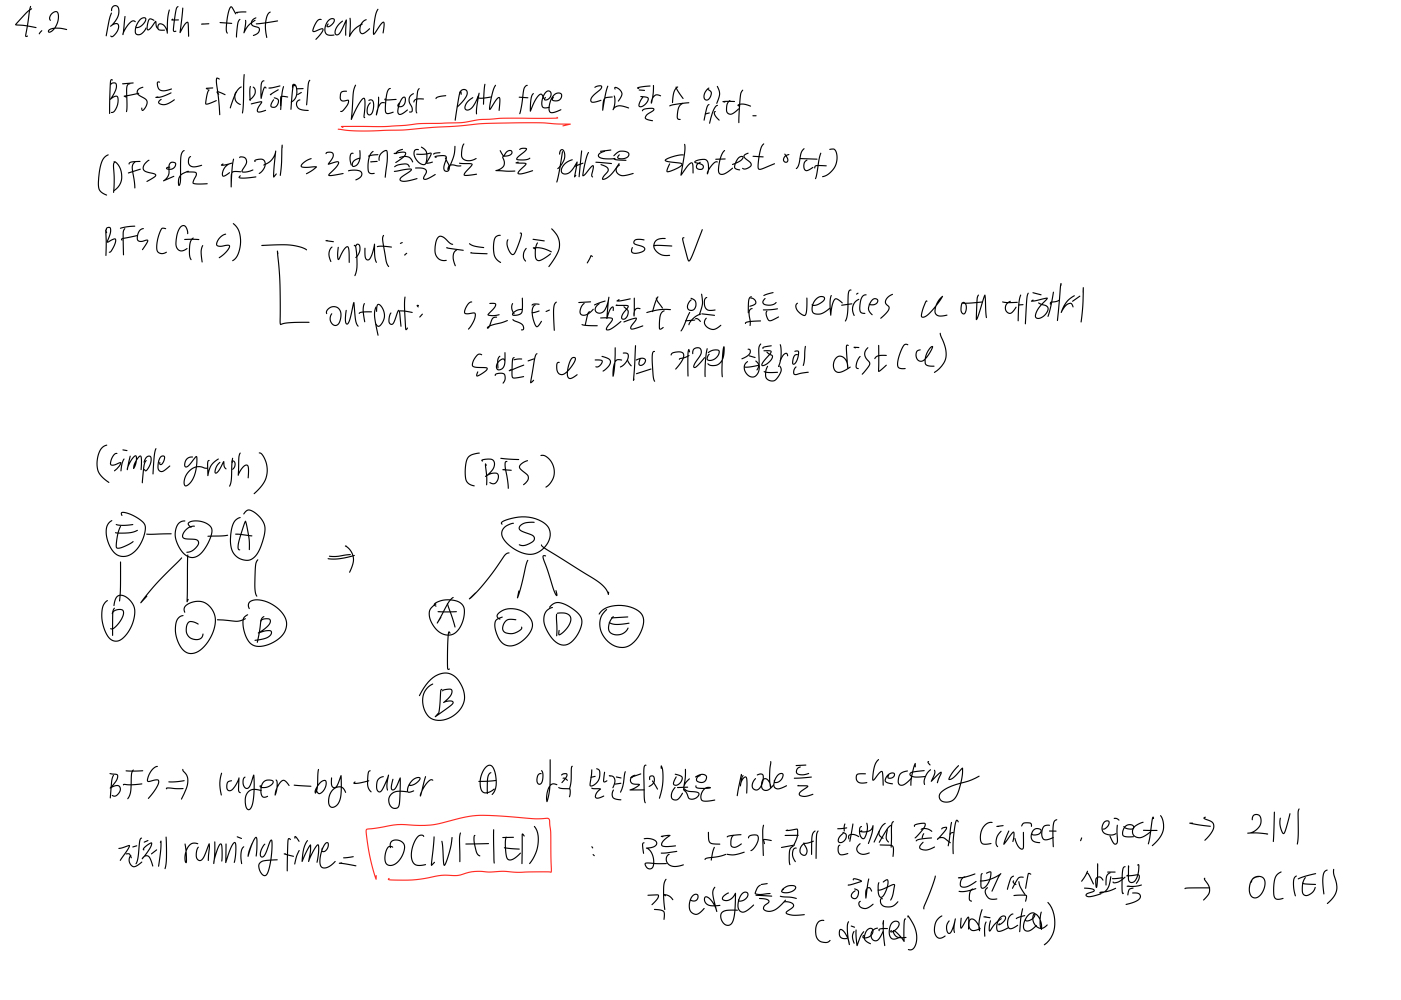 4.2 Breadth-first search
BFS는 다시말하면 shortest-path tree 라고 할 수 있다.
(DFS와는 다르게 s로부터 출발하는 모든 path들은 shortest이다)
BFS(G, s) input: G=(V,E), s∈V
output: s로부터 도달할 수 있는 모든 vertices u에 대해서
s부터 u까지의 거리의 집합인 dist(u)
(simple graph) (BFS)
E S A ⇒ S
D C B A C D E
B
BFS ⇒ layer-by-layer ⊕ 아직 발견되지 않은 node들 checking
전체 running time = O(|V|+|E|) : 모든 노드가 큐에 한번씩 존재 (inject, eject) → 2|V|
각 edge들을 한번 / 두번씩 살펴봄 → O(|E|)
(directed) (undirected)